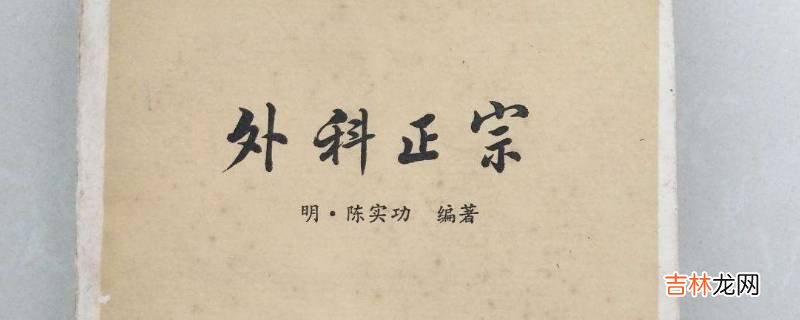 外科正宗
明·陈实功 编著
吉林龙网